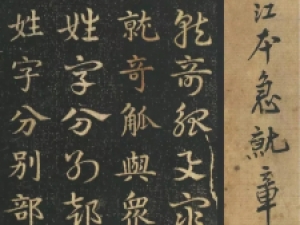 江本急就章
就奇觚与眾
就奇觚與眾
姓字分別部
姓字分別部